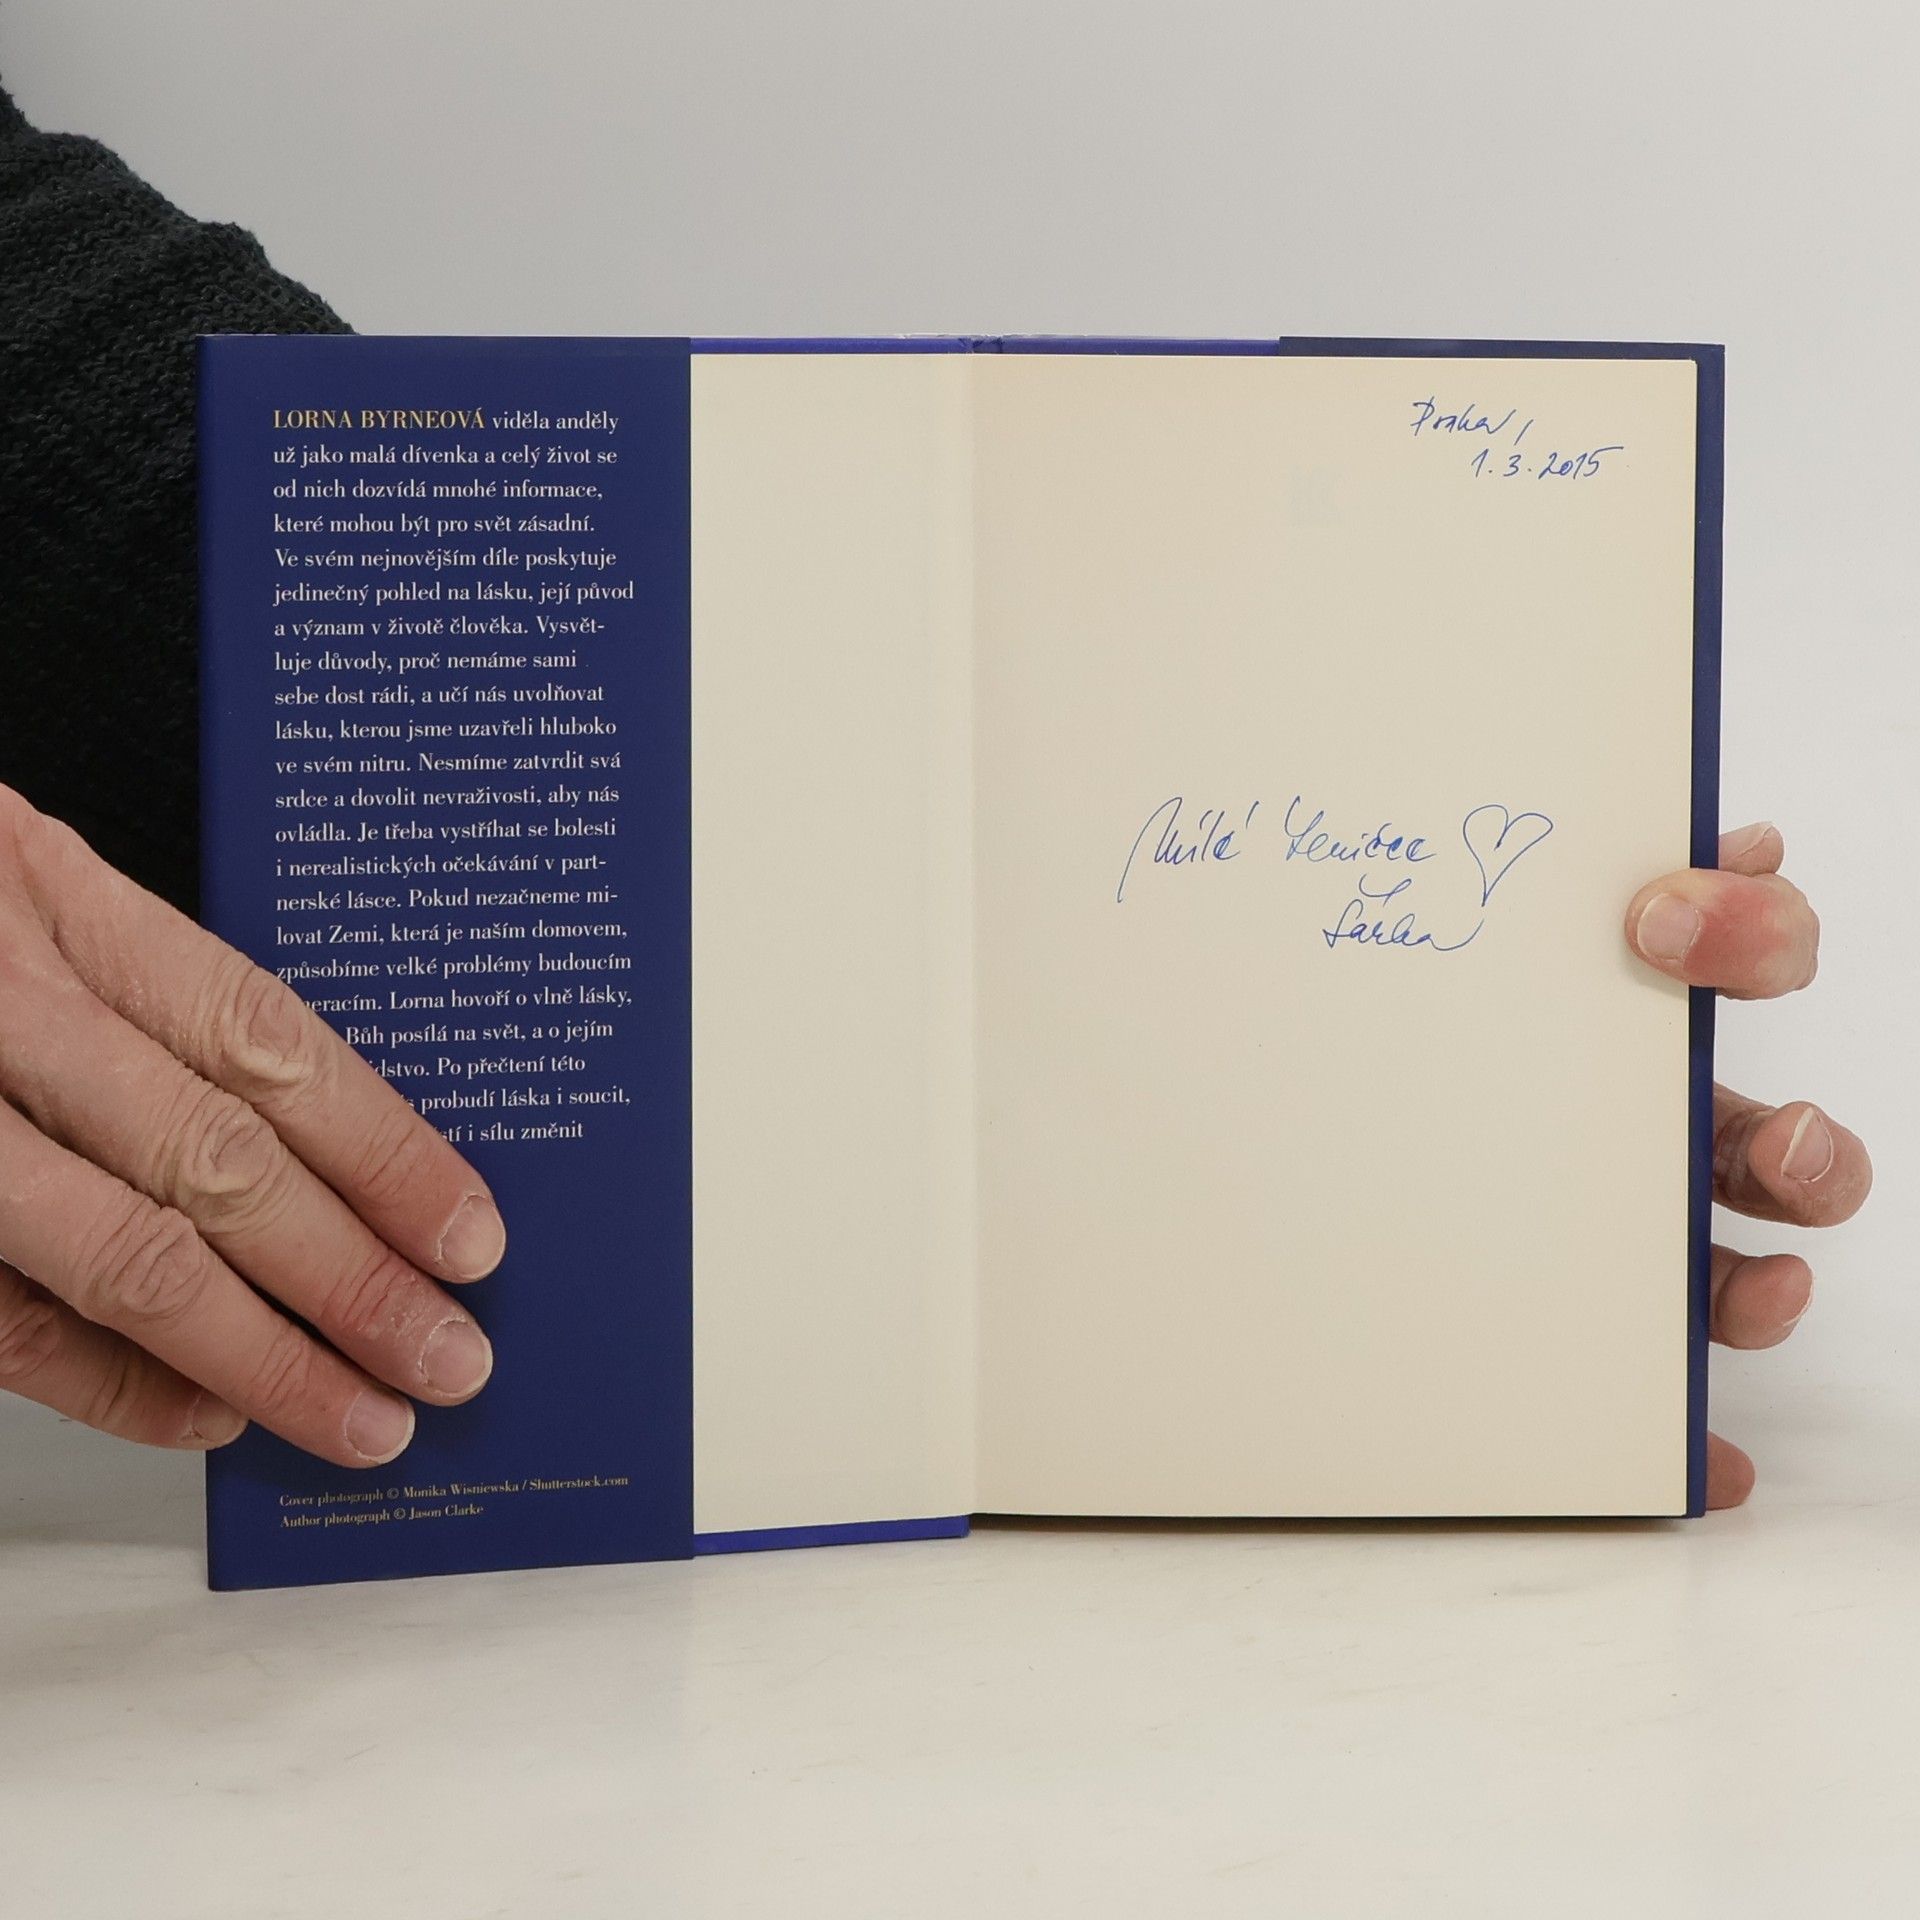 LORNA BYRNEOVÁ viděla anděly
už jako malá dívenka a celý život se
od nich dozvídá mnohé informace,
které mohou být pro svět zásadní.
Ve svém nejnovějším díle poskytuje
jedinečný pohled na lásku, její původ
a význam v životě člověka. Vysvět-
luje důvody, proč nemáme sami
sebe dost rádi, a učí nás uvolňovat
lásku, kterou jsme uzavřeli hluboko
ve svém nitru. Nesmíme zatvrdit svá
srdce a dovolit nevraživosti, aby nás
ovládla. Je třeba vystříhat se bolesti
i nerealistických očekávání v part-
nerské lásce. Pokud nezačneme mi-
lovat Zemi, která je naším domovem,
způsobíme velké problémy budoucím
eracím. Lorna hovoří o vlně lásky,
Bůh posílá na svět, a o jejím
idstvo. Po přečtení této
s probudí láska i soucit,
stí i sílu změnit
Cover photograph © Monika Wisniewska / Shutterstock.com
Author photograph © Jason Clarke
Praha,
1. 3. 2015
Milé
Šárka